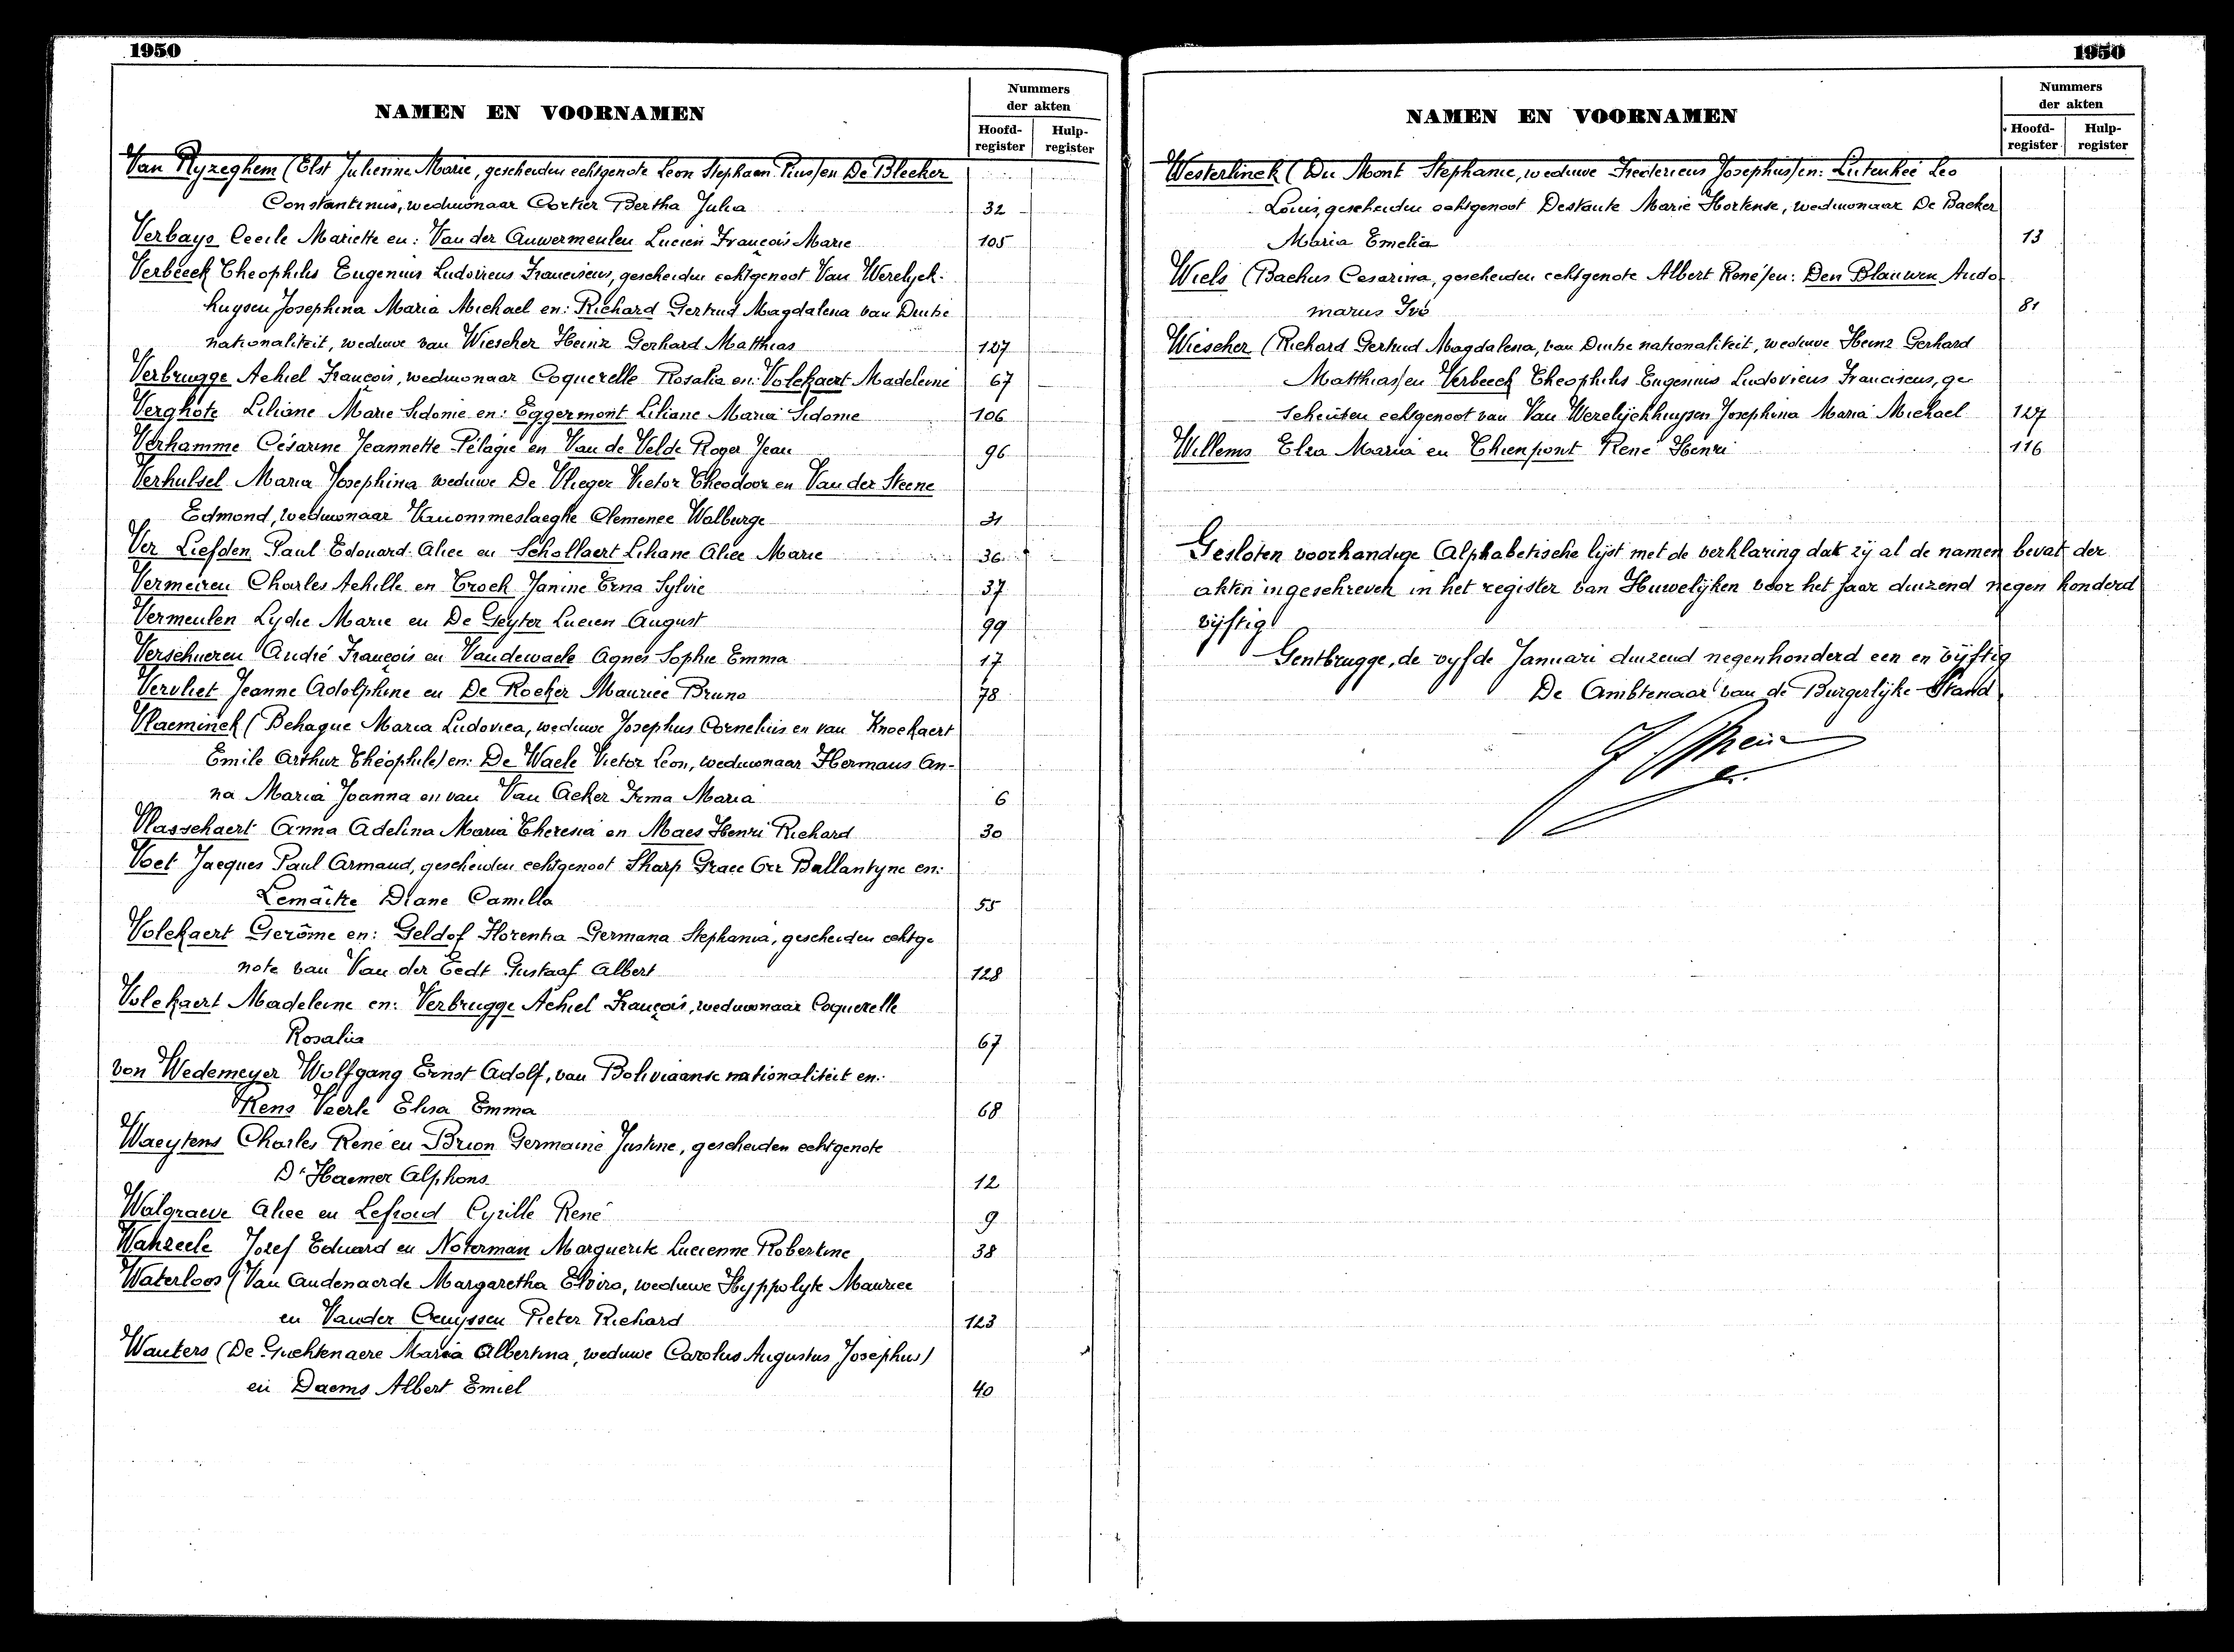 1950
NAMEN EN VOORNAMEN
Nummers
der akten
Hoofd-
register
Hulp-
register
Van Ryzeghem (Elst Julienne Marie, gescheiden echtgenote Leon Stephaan Pius) en De Blecker
Constantinus, weduwnaar Cortier Bertha Julia 32
Verbays Cecile Mariette en: Van der Auwermeulen Lucien François Marie 105
Verbeeck Theophilis Eugenius Ludovicus Franciscus, gescheiden echtgenoot Van Werelyck-
huysen Josephina Maria Michael en: Richard Gertrud Magdalena van Duitse
nationaliteit, weduwe van Wiescher Heinz Gerhard Matthias 127
Verbrugge Achiel François, weduwnaar Coquerelle Rosalia en: Volckaert Madeleine 67
Verghote Liliane Marie Sidonie en: Eggermont Liliane Maria Sidonie 106
Verhamme Césarine Jeannette Pélagie en Van de Velde Roger Jean 96
Verhulsel Maria Josephina weduwe De Vlieger Victor Theodoor en Van der Steene
Edmond, weduwnaar Vanommeslaeghe Clemence Walburge 31
Ver Liefden Paul Edouard Alice en Schollaert Liliane Alice Marie 36
Vermeiren Charles Achille en Troch Janine Erna Sylvie 37
Vermeulen Lydie Marie en De Geyter Lucien August 99
Verschueren André François en Vandewaele Agnes Sophie Emma 17
Vervliet Jeanne Adolphine en De Rocker Maurice Bruno 78
Vlaeminck (Behague Maria Ludovica, weduwe Josephus Cornelius en van Knockaert
Emile Arthur Théophile) en: De Waele Victor Leon, weduwnaar Hermans An-
na Maria Joanna en van Van Acker Irma Maria 6
Vlasschaert Anna Adelina Maria Theresia en Maes Henri Richard 30
Voet Jacques Paul Armand, gescheiden echtgenoot Sharp Grace Orr Ballantyne en:
Lemaître Diane Camilla 55
Volckaert Gerôme en: Geldof Florentia Germana Stephania, gescheiden echtge
note van Van der Eedt Gustaaf Albert 128
Volckaert Madeleine en: Verbrugge Achiel François, weduwnaar Coquerelle
Rosalia 67
von Wedemeyer Wolfgang Ernst Adolf, van Boliviaanse nationaliteit en:
Rens Veerle Elisa Emma 68
Waeytens Charles René en Brion Germaine Justine, gescheiden echtgenote
D'Haemer Alphons 12
Walgraeve Alice en Lefroid Cyrille René 9
Walizeele Jozef Eduard en Noterman Marguerite Lucienne Robertine 38
Waterloos (Van Audenaerde Margaretha Elvira, weduwe Hyppolyte Maurice
en Vander Cruyssen Pieter Richard 123
Wauters (De Guchtenaere Maria Albertina, weduwe Carolus Augustus Josephus)
en Daems Albert Emiel 40
1950
NAMEN EN VOORNAMEN
Nummers
der akten
Hoofd-
register
Hulp-
register
Westerlinck (Du Mont Stephanie, weduwe Fredericus Josephus) en: Leo
Louis, gescheiden echtgenoot Marie Hortense, weduwnaar De Backer
Maria Emelia 13
Wiels (Backus Cesarina, gescheiden echtgenote Albert René) en: Den Blauwen Audo
marus Ivo 81
Wiescher (Richard Gertrud Magdalena, van Duitse nationaliteit, weduwe Heinz Gerhard
Matthias) en Verbeeck Theophilis Eugenius Ludovicus Franciscus, ge
scheiden echtgenoot van Van Werelyckhuysen Josephina Maria Michael 127
Willems Elza Maria en Thienpont René Henri 116
Gesloten voorhandige Alphabetische lijst met de verklaring dat zij al de namen bevat der
akten ingeschreven in het register van Huwelijken voor het jaar duizend negen honderd
vijftig
Gentbrugge, de vyfde Januari duizend negenhonderd een en vijftig
De Ambtenaar van de Burgerlijke Stand